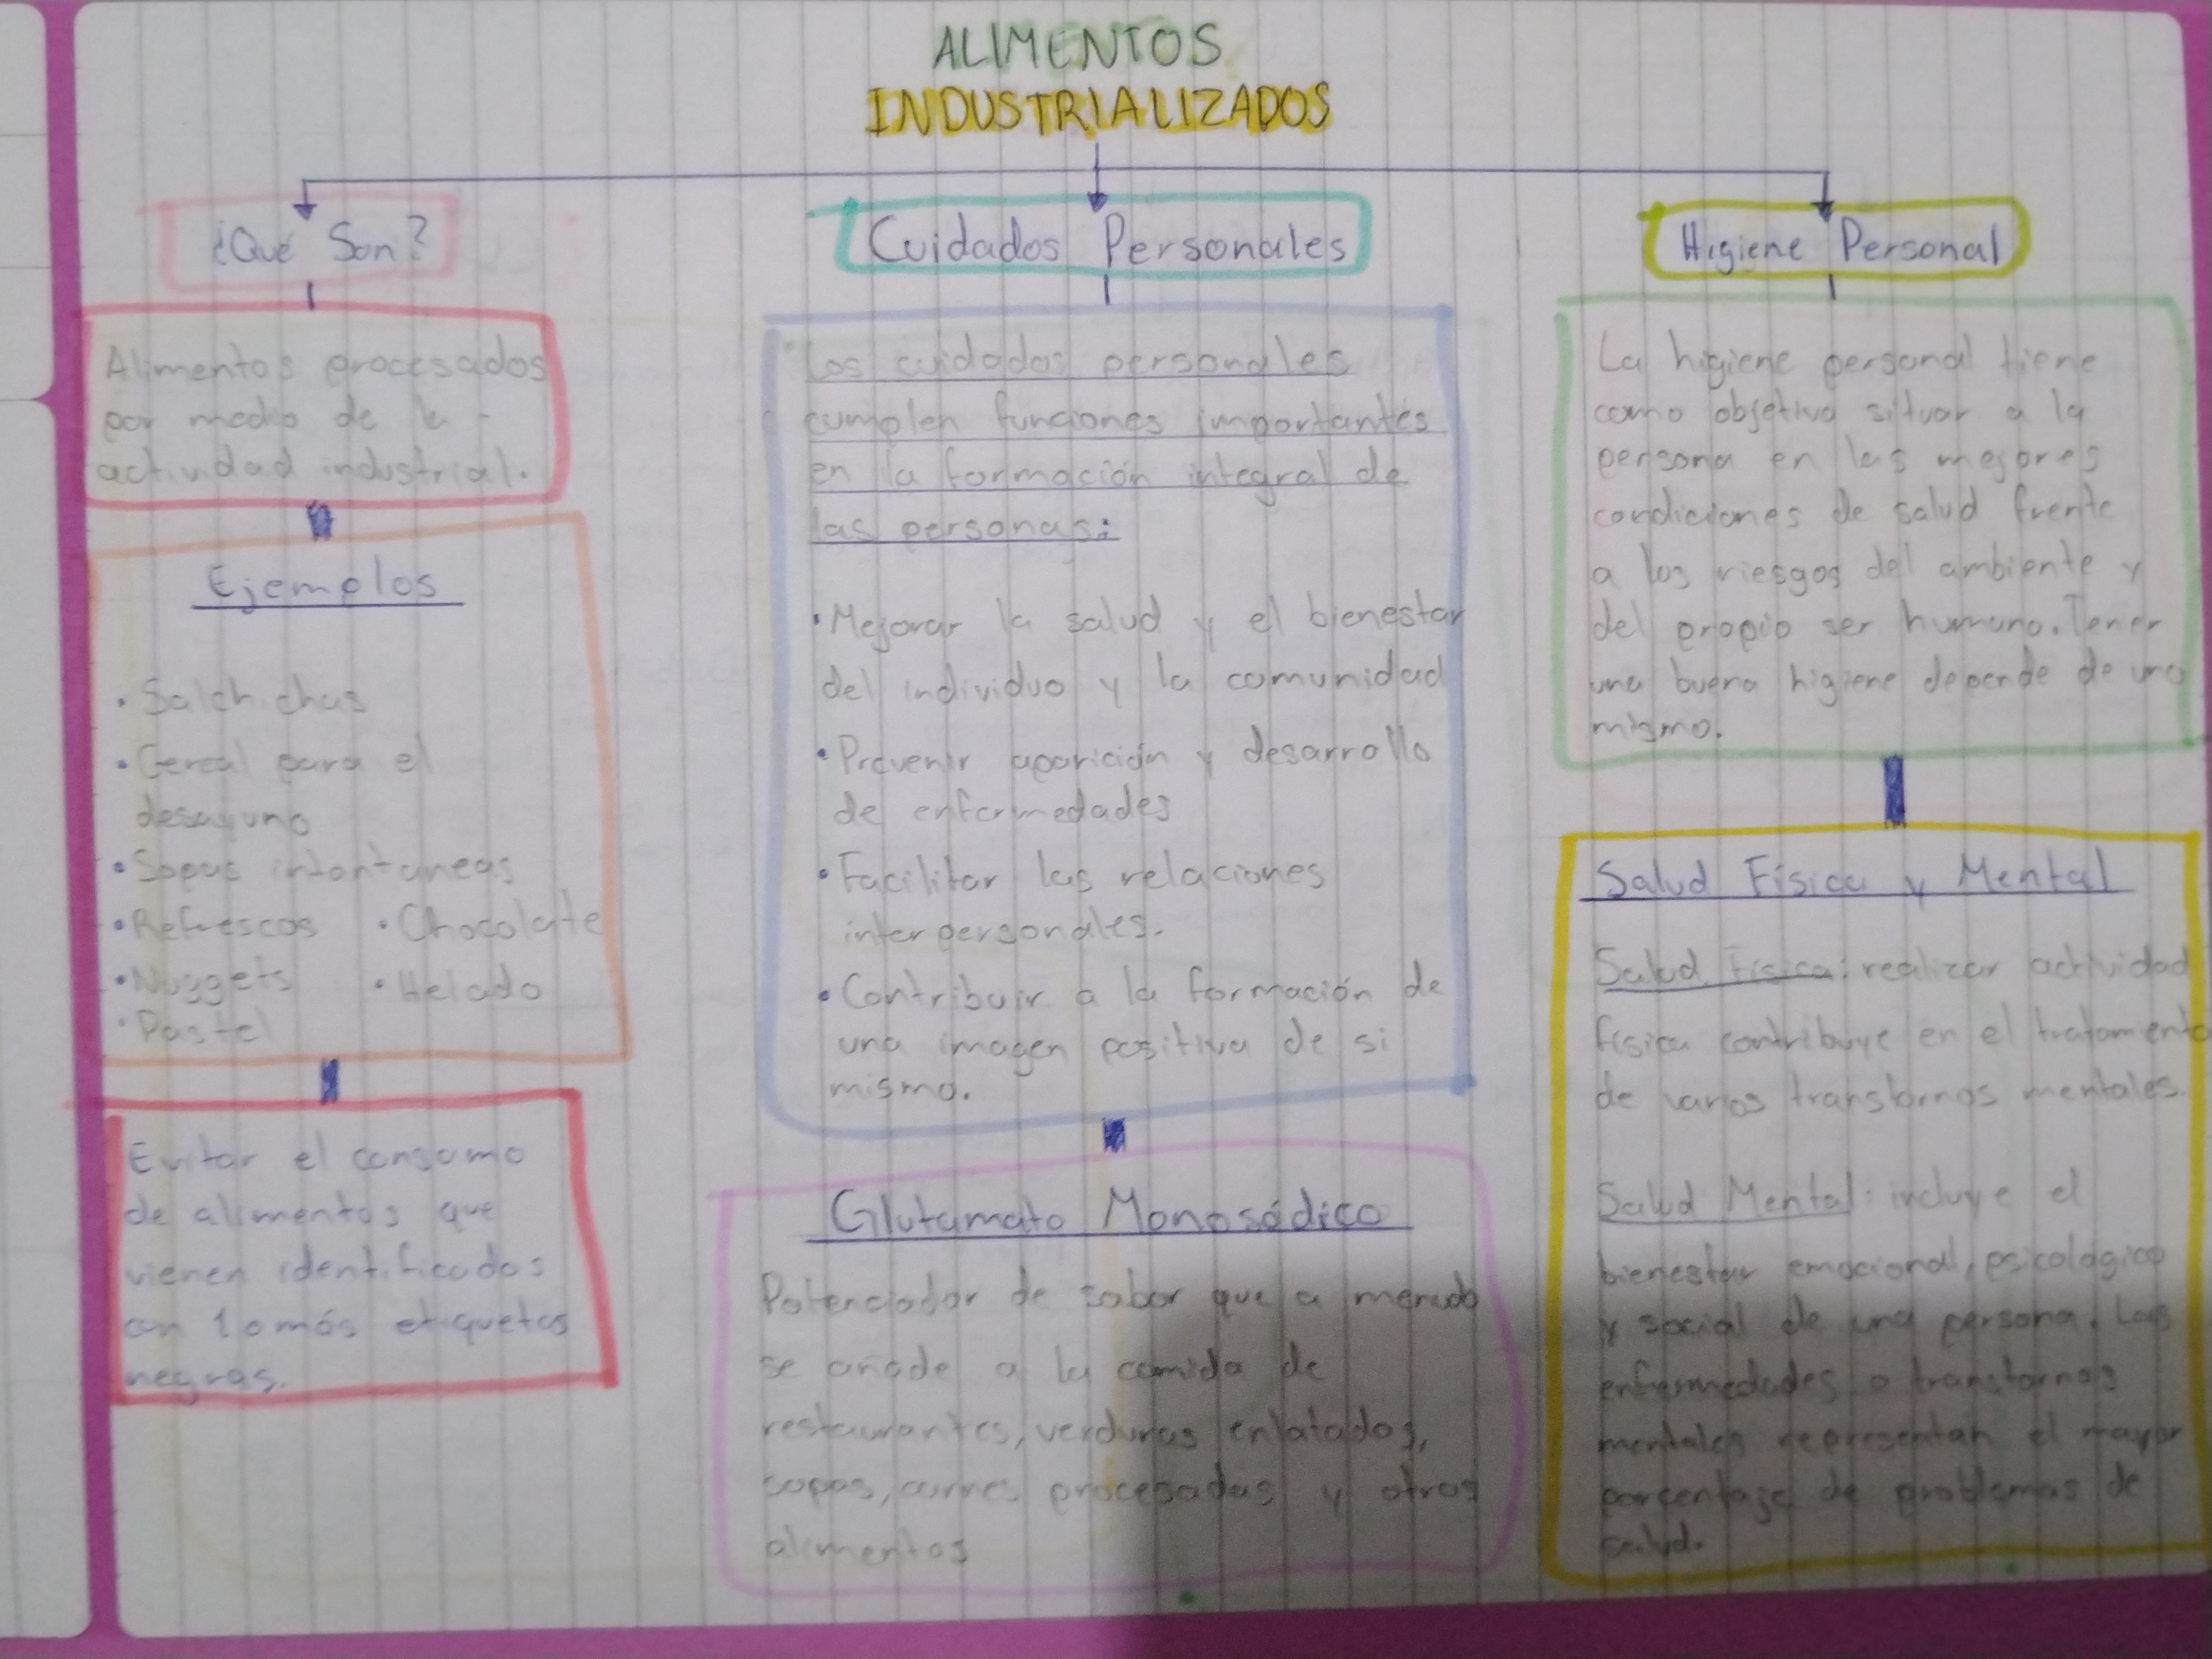 ALIMENTOS
INDUSTRIALIZADOS
¿Qué Son?
Alimentos procesados
por medio de la -
actividad industrial.
Ejemplos
• Salchichas
• Cereal para el
desayuno
• Sopas intantaneas
• Refrescos • Chocolate
• Nuggets • Helado
• Pastel
Evitar el consumo
de alimentos que
vienen identificados
con 1 o más etiquetas
negras.
Cuidados Personales
Los cuidados personales
cumplen funciones importantes
en la formación integral de
las personas:
• Mejorar la salud y el bienestar
del individuo y la comunidad
• Prevenir aparición y desarrollo
de enfermedades
• Facilitar las relaciones
interpersonales.
• Contribuir a la formación de
una imagen positiva de si
mismo.
Glutamato Monosódico
Potenciador de sabor que a menudo
se añade a la comida de
restaurantes, verduras enlatados,
sopas, carnes procesadas y otros
alimentos
Higiene Personal
La higiene personal tiene
como objetivo situar a la
persona en las mejores
condiciones de salud frente
a los riesgos del ambiente y
del propio ser humano. Tener
una buena higiene depende de uno
mismo.
Salud Física y Mental
Salud Fisica: realizar actividad
física contribuye en el tratamiento
de varios mentales.
Salud Mental: incluye el
bienestar emocional, psicológico
y social de una persona. Las
enfermedades o transtornos
mentales representan el mayor
porcentaje de problemas de
salud.